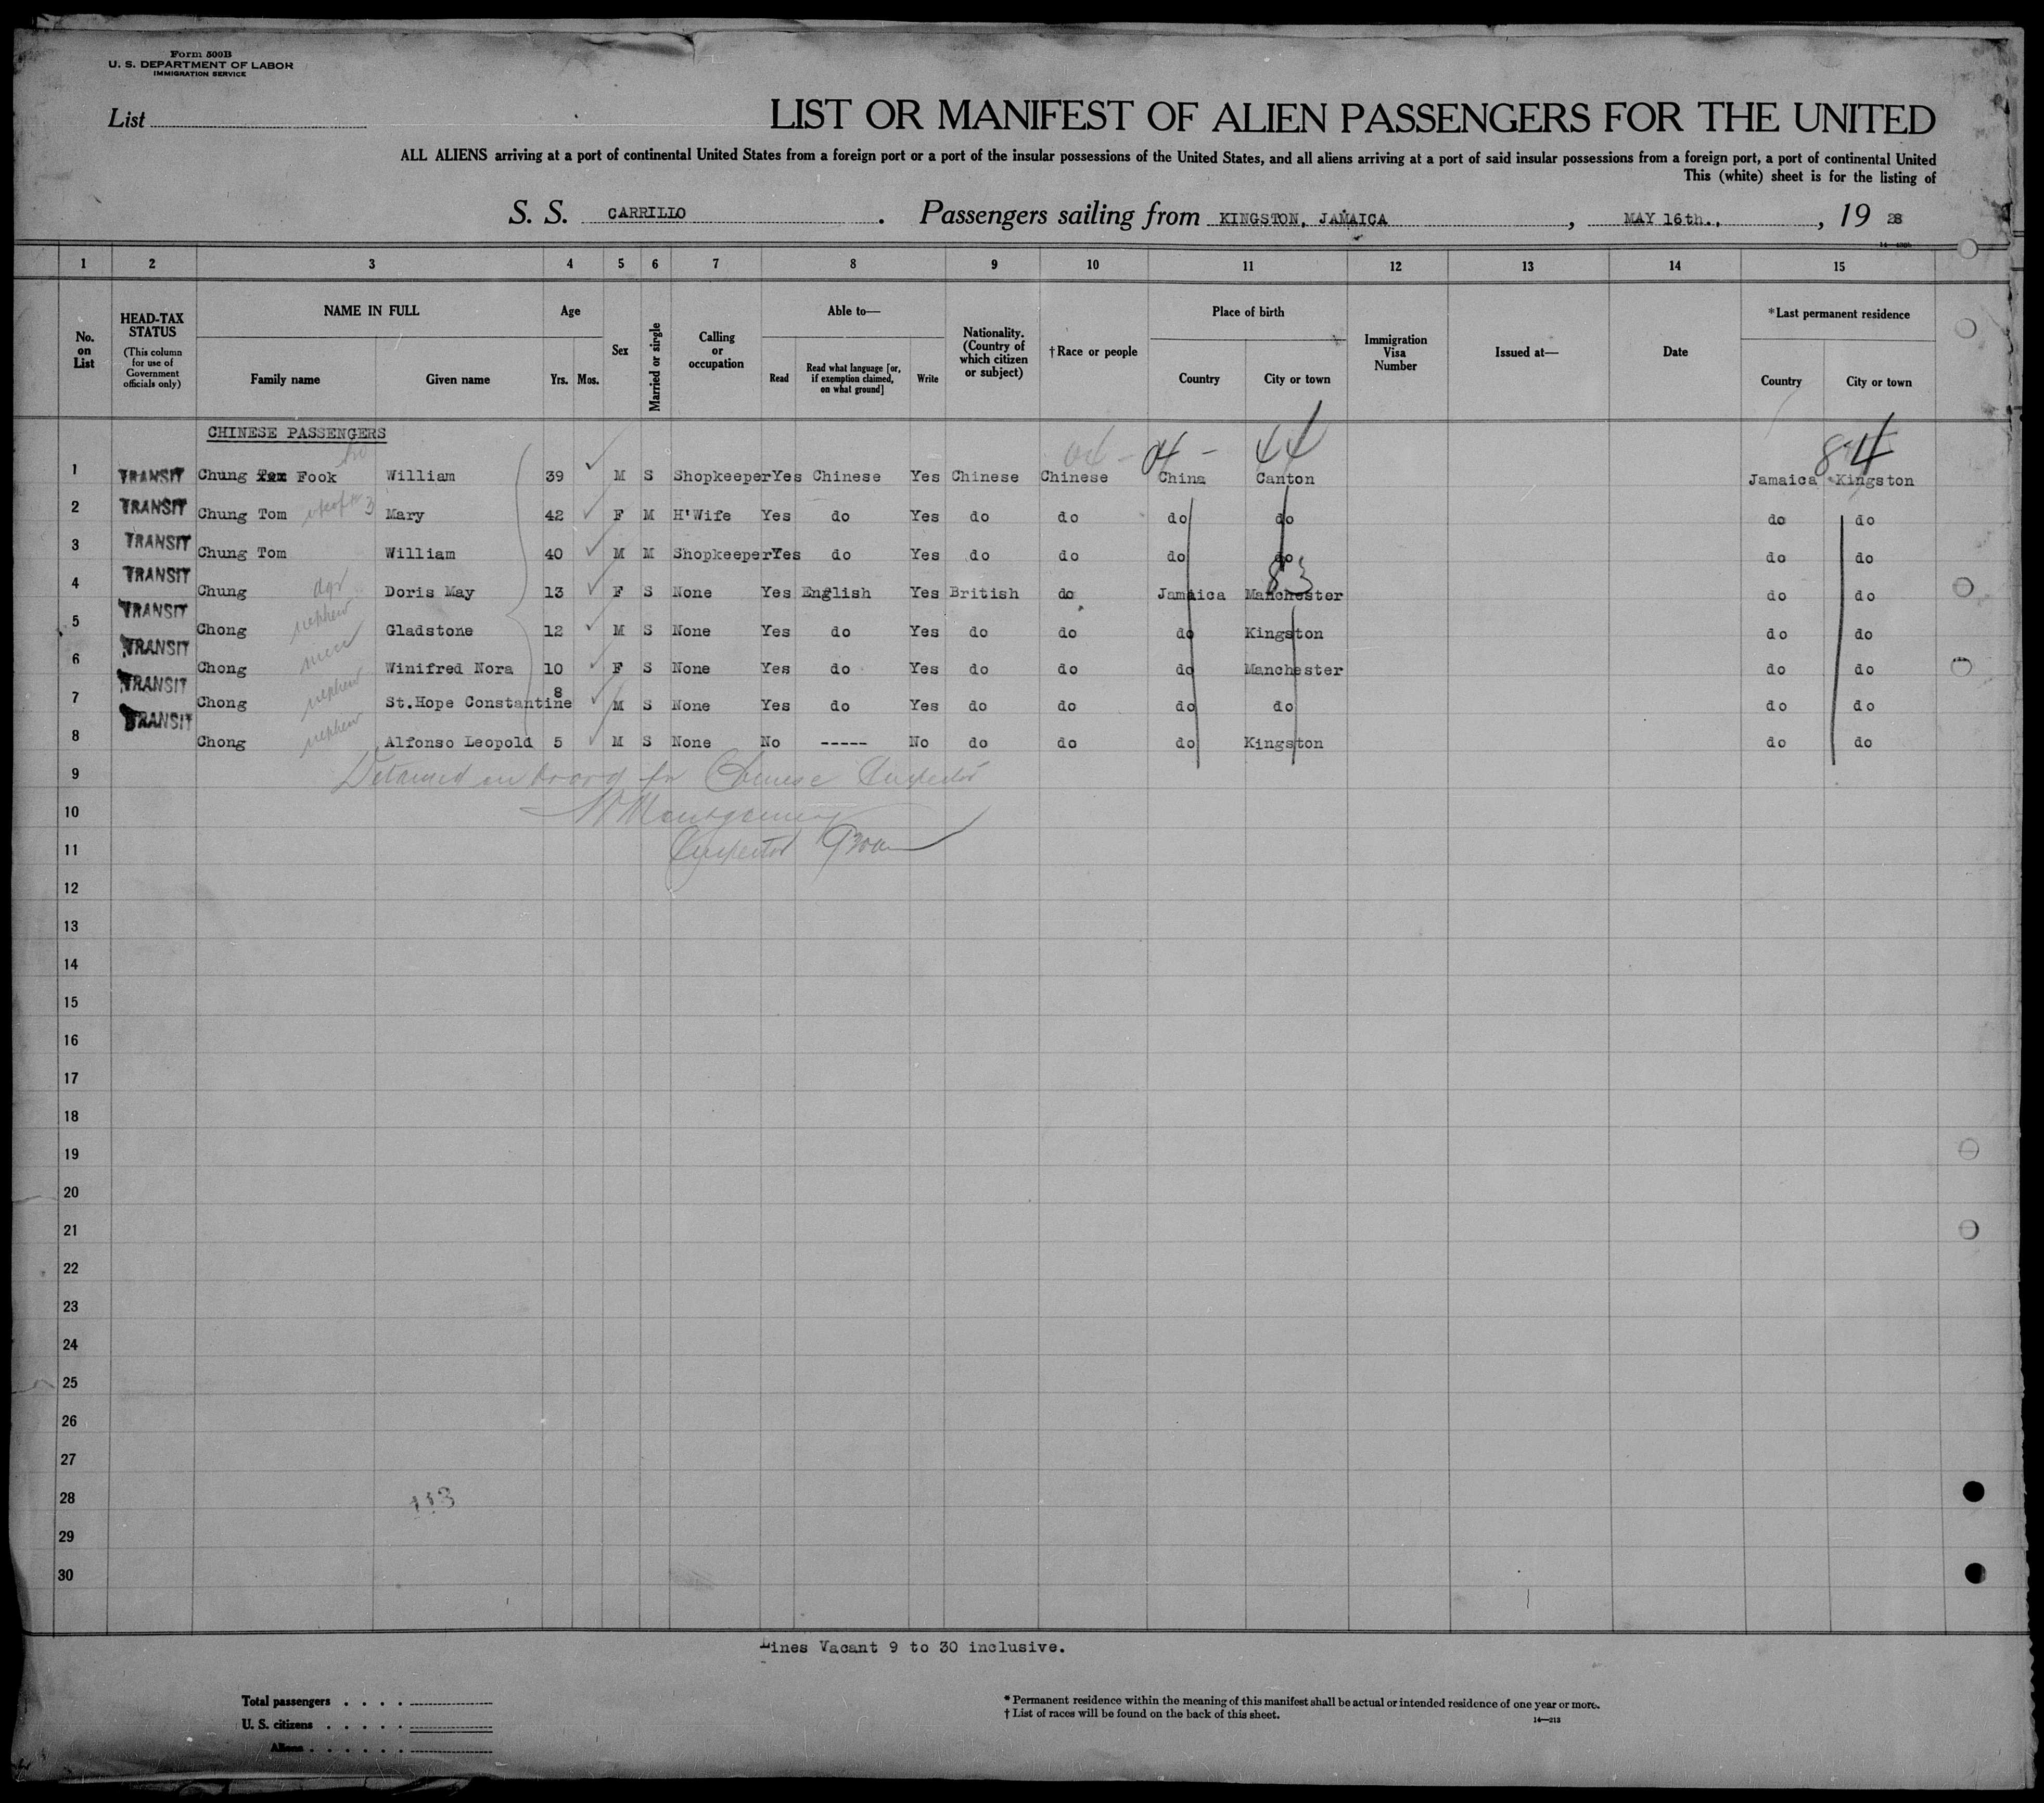 Form 500B
U. S. DEPARTMENT OF LABOR
IMMIGRATION SERVICE
List
LIST OR MANIFEST OF ALIEN PASSENGERS FOR THE UNITED
ALL ALIENS arriving at a port of continental United States from a foreign port or a port of the insular possessions of the United States, and all aliens arriving at a port of said insular possessions from a foreign port, a port of continental United
This (white) sheet is for the listing of
S. S. CARRILLO . Passengers sailing from KINGSTON, JAMAICA , MAY 16th., , 19 28
1 2 3 4 5 6 7 8 9 10 11 12 13 14 15
No. on List
HEAD-TAX STATUS (This column for use of Government officials only)
NAME IN FULL
Family name
Given name
Age
Yrs. Mos.
Sex
Married or single
Calling or occupation
Able to—
Read
Read what language [or, if exemption claimed, on what ground]
Write
Nationality. (Country of which citizen or subject)
†Race or people
Place of birth
Country
City or town
Immigration Visa Number
Issued at—
Date
*Last permanent residence
Country
City or town
CHINESE PASSENGERS
04 - 04 - 44 84
1 TRANSIT Chung Tom Fook William 39 M S Shopkeeper Yes Chinese Yes Chinese Chinese China Canton Jamaica Kingston
2 TRANSIT Chung Tom wife of #3 Mary 42 F M H'Wife Yes do Yes do do do do do do
3 TRANSIT Chung Tom William 40 M M Shopkeeper Yes do Yes do do do do do do
83
4 TRANSIT Chung dgr Doris May 13 F S None Yes English Yes British do Jamaica Manchester do do
5 TRANSIT Chong nephew Gladstone 12 M S None Yes do Yes do do do Kingston do do
6 TRANSIT Chong niece Winifred Nora 10 F S None Yes do Yes do do do Manchester do do
7 TRANSIT Chong nephew St.Hope Constantine 8 M S None Yes do Yes do do do do do do
8 TRANSIT Chong nephew Alfonso Leopold 5 M S None No ----- No do do do Kingston do do
9 Detained on board for Chinese Inspector
10 Montgomery
11 Inspector
12
13
14
15
16
17
18
19
20
21
22
23
24
25
26
27
28 113
29
30
Lines Vacant 9 to 30 inclusive.
Total passengers . . . .
U. S. citizens . . . . .
Aliens . . . . . .
* Permanent residence within the meaning of this manifest shall be actual or intended residence of one year or more.
† List of races will be found on the back of this sheet.
14—213